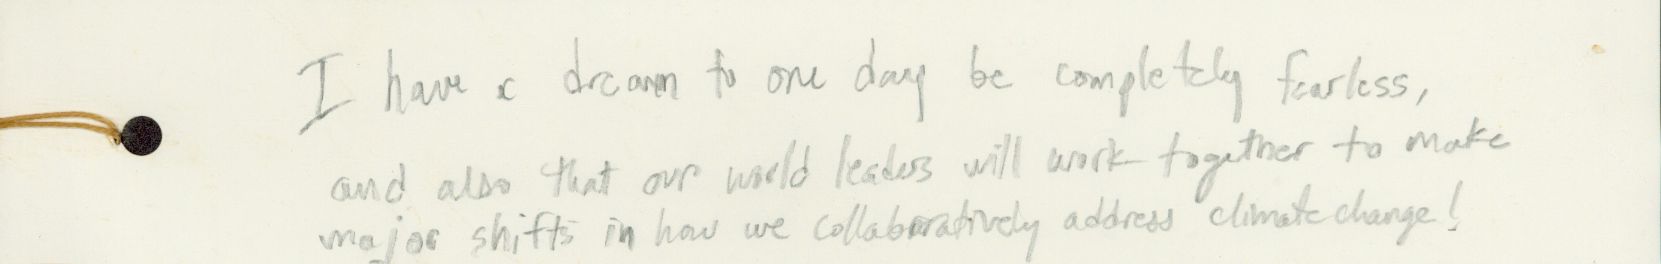 I have a dream to one day be completely fearless,
and also that our world leaders will work together to make
major shifts in how we collaboratively address climate change!